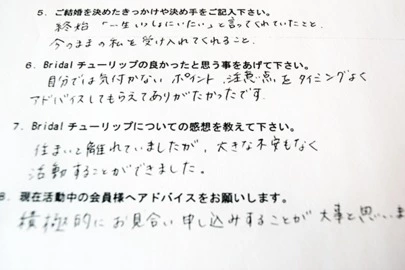 5．ご結婚を決めたきっかけや決め手をご記入下さい。
終始「一生いっしょにいたい」と言ってくれていたこと、
今のままの私を受け入れてくれること。
6．Bridal チューリップの良かったと思う事をあげて下さい。
自分では気付かない ポイント、注意点をタイミングよく
アドバイスしてもらえてありがたかったです。
7．Bridal チューリップについての感想を教えて下さい。
住まいと離れていましたが、大きな不安もなく
活動することができました。
8．現在活動中の会員様へアドバイスをお願いします。
積極的に お見合い 申し込みすることが 大事と思いま